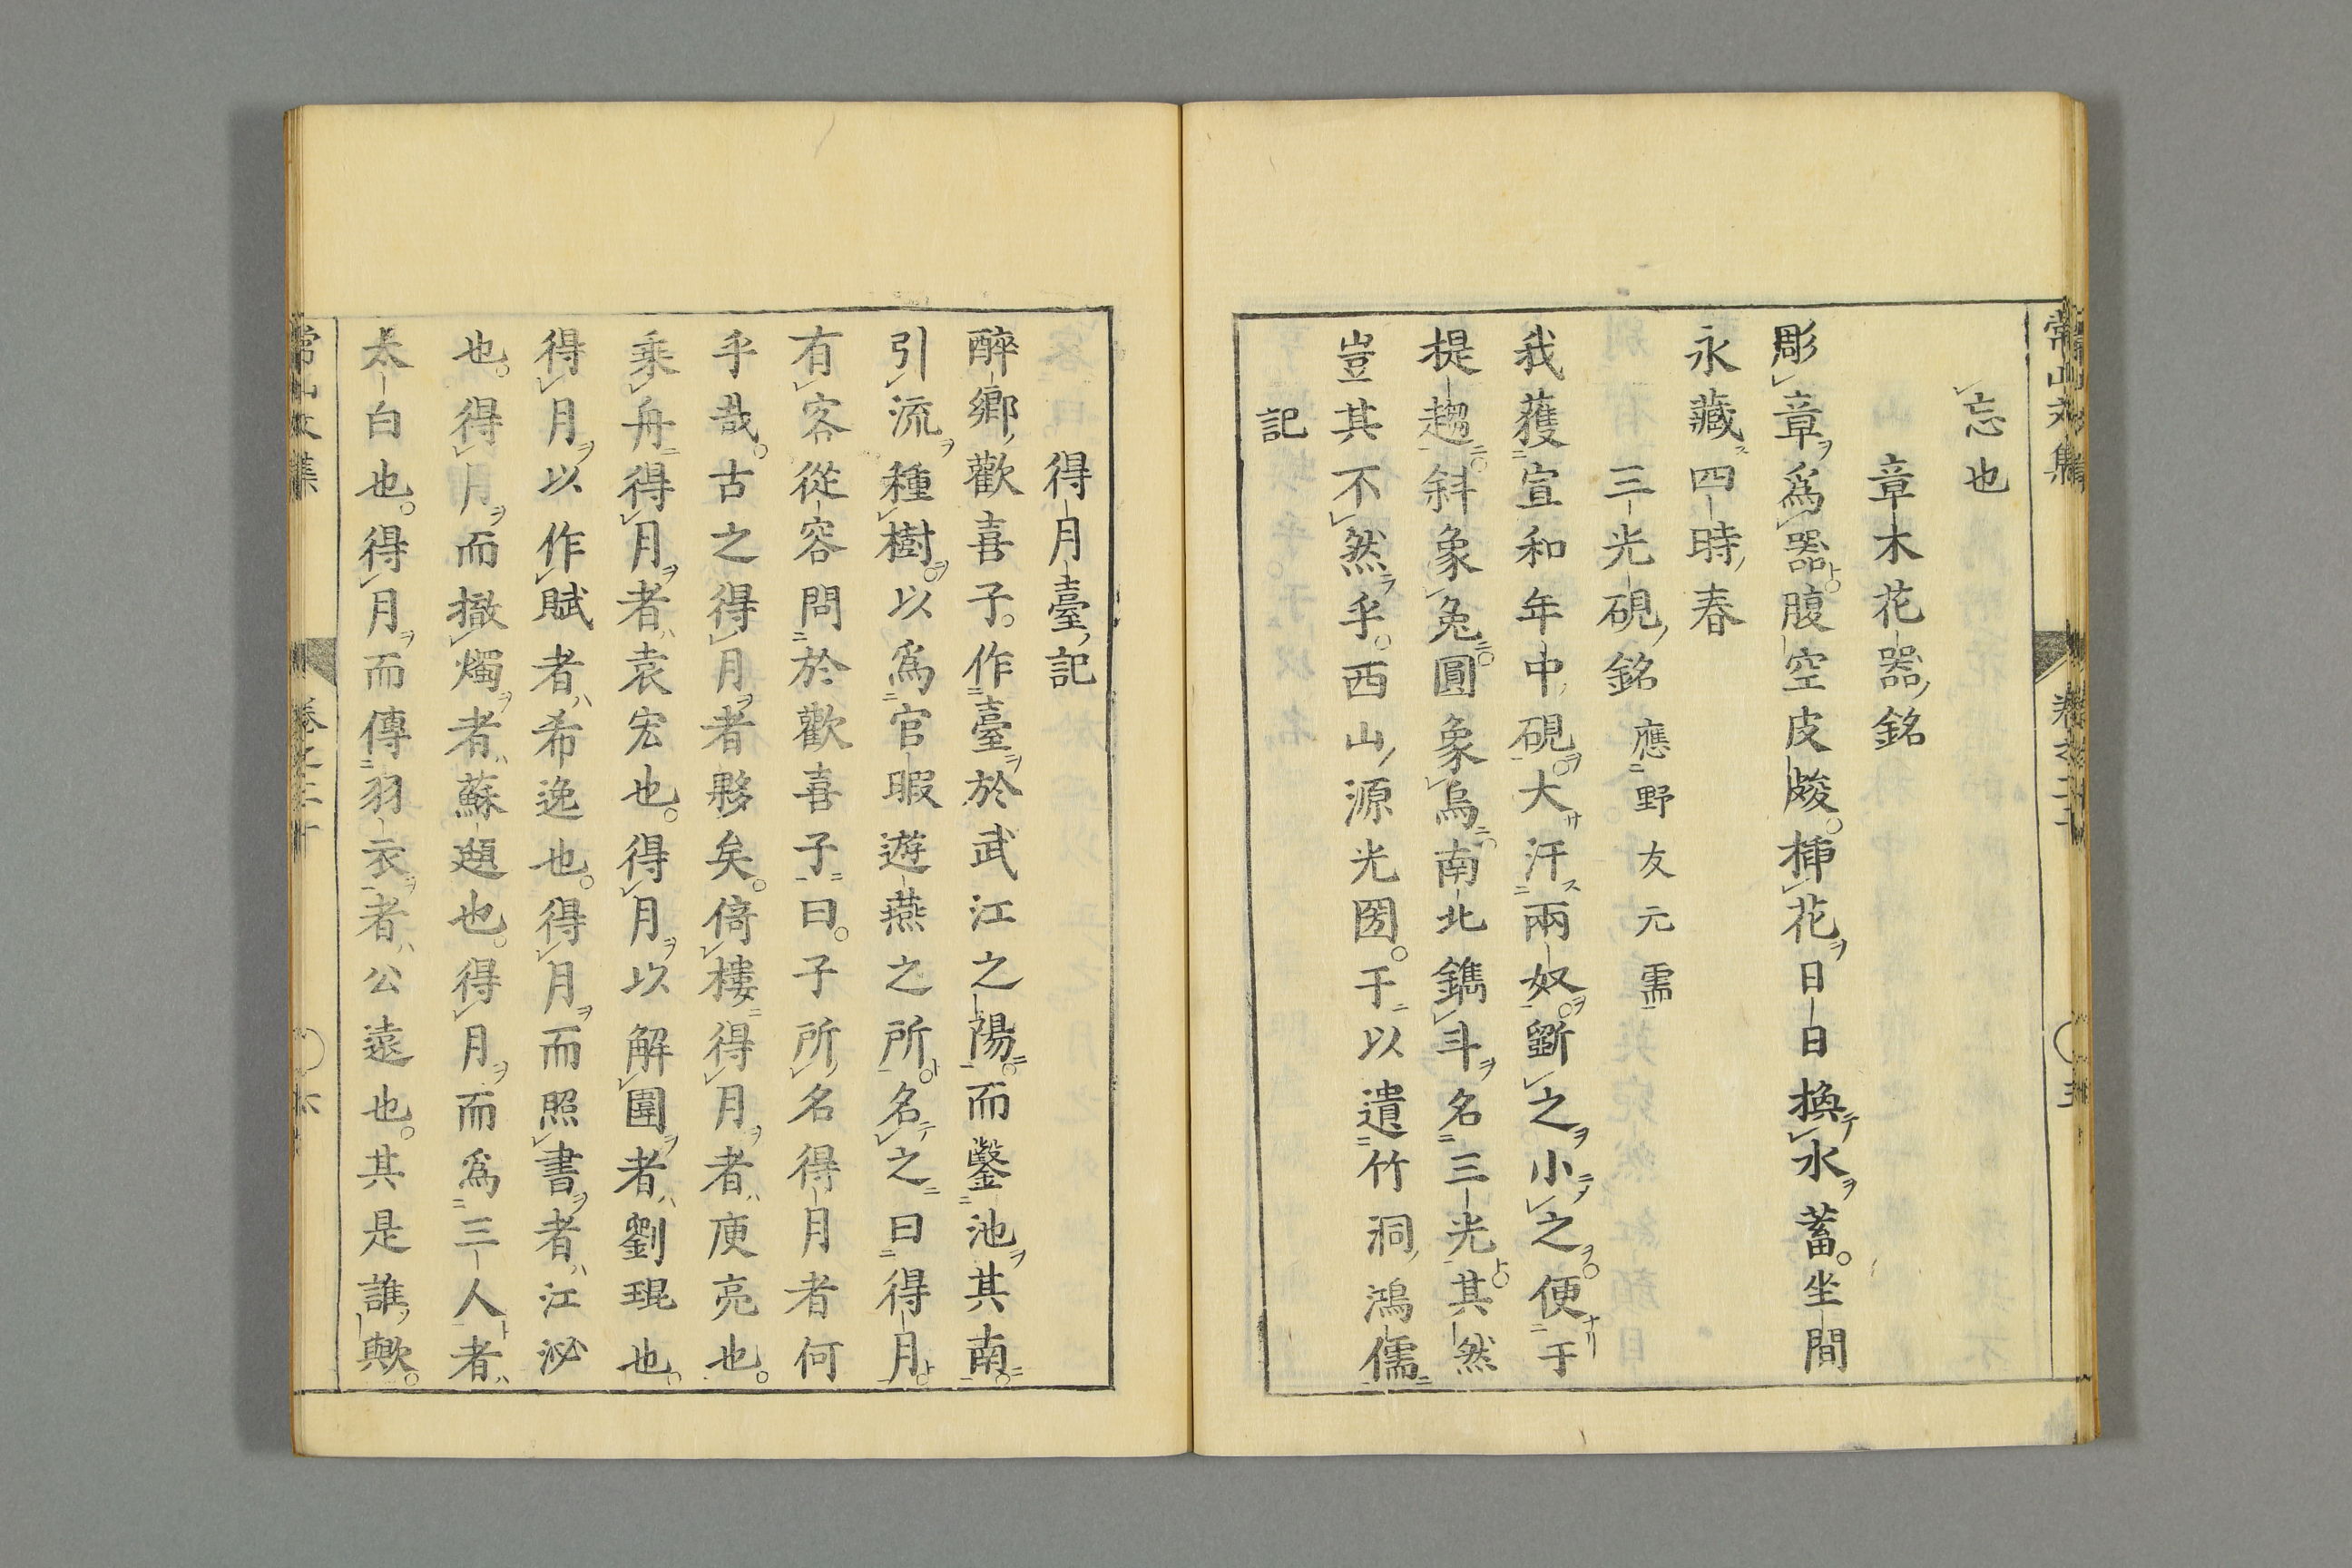 常山文集
卷之二十
忘也
章木花器銘
彫章爲器腹空皮皴挿花日日換水蓄坐間
永藏四時春
三光硯銘 應野友元需
我獲宣和年中硯大汗兩奴斵之小之便于
提趨斜象兔圓象烏南北鐫斗名三光其然
豈其不然乎西山源光圀于以遺竹洞鴻儒
記
得月臺記
醉鄉歡喜子作臺於武江之陽而鑿池其南
引流種樹以爲官暇遊燕之所名之曰得月
有客從容問於歡喜子曰子所名得月者何
乎哉古之得月者夥矣倚樓得月者庾亮也
乘舟得月者袁宏也得月以解圍者劉琨也
得月以作賦者希逸也得月而照書者江泌
也得月而撤燭者蘇頲也得月而爲三人者
太白也得月而傳羽衣者公遠也其是誰歟
常山文集
卷之二十
六